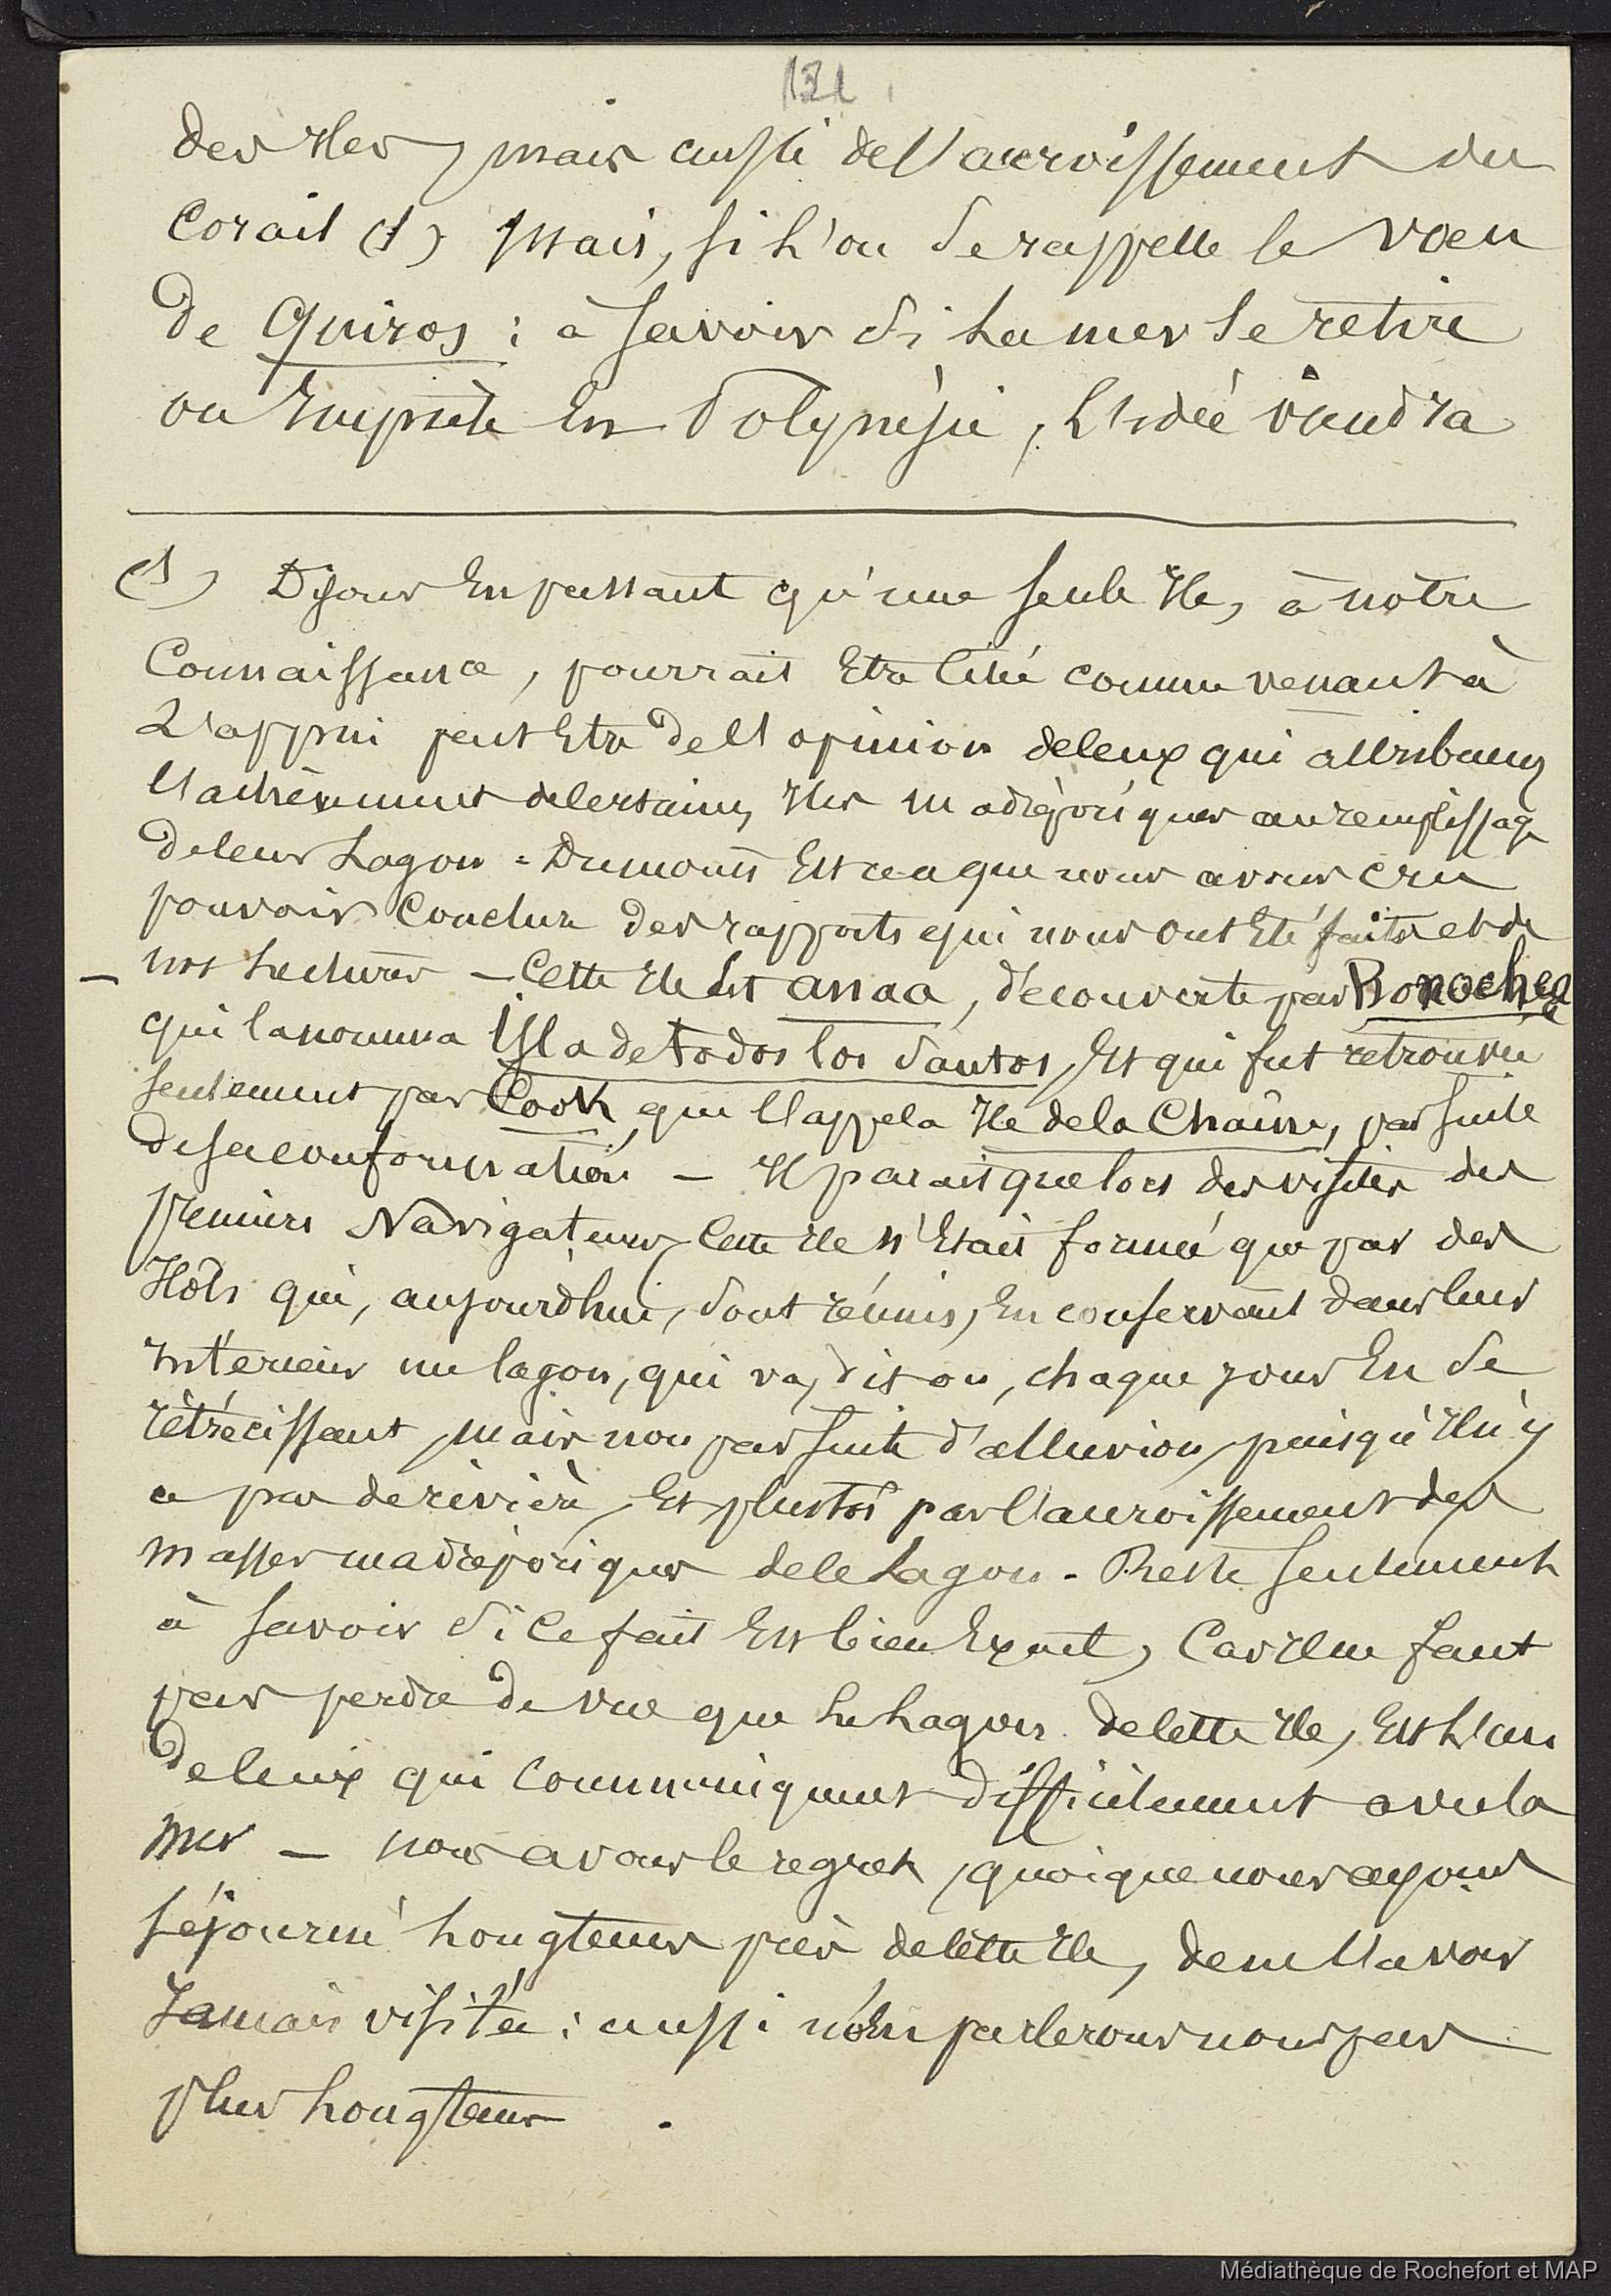 131
des îles, mais aussi de l'accroissement du
Corail (1) Mais, si l'on se rappelle le vœu
de Quiros : à savoir si la mer se retire
ou Empiète En Polynésie, l'idée viendra
(1) Disons En passant qu'une seule île, à notre
Connaissance, pourrait Etre Citée comme venant à
L'appui peut Etre de l'opinion de Ceux qui attribuent
l'achèvement de Certaines îles madréporiques au remplissage
de leur Lagon - Du moins Est ce a que nous avons cru
pouvoir Conclure des rapports qui nous ont Eté faits et de
- nos Lectures - Cette île Est anaa, découverte par Bonochea
qui la nomma Isla de todos los Santos, Et qui fut retrouvée
seulement par Cook, qui l'appela Ile de la Chaîne, par suite
de sa conformation - Il parait que lors des visites des
premiers Navigateurs, Cette île n'Etait formée que par des
Ilots qui, aujourdhui, sont réunis, En conservant dans leur
intérieur un lagon, qui va, dit on, chaque jour En se
rétrécissant, mais non par suite d'alluvion, puisqu'il n'y
a pas de rivière, Et plustôt par l'accroissement des
masses madréporiques de Ce Lagon. Reste seulement
à savoir si Ce fait Est bien Exact, Car il ne faut
pas perdre de vue que le Lagon de Cette île, Est l'un
de Ceux qui Communiquent difficilement avec la
mer - nous avons le regret, quoique nous ayons
séjourné Longtems près de Cette île, de ne l'avoir
Jamais visitée : aussi n'En parlerons nous pas
plus Longtems .
Médiathèque de Rochefort et MAP